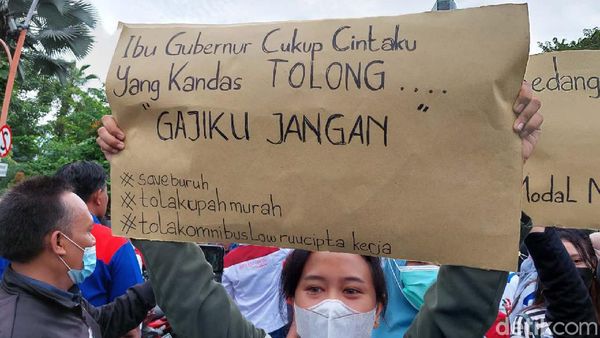 Ibu Gubernur Cukup Cintaku
Yang Kandas TOLONG ....
"GAJIKU JANGAN"
#saveburuh
#tolakupahmurah
#tolakomnibusLowruucipta kerja
edang
Modal
detikcom